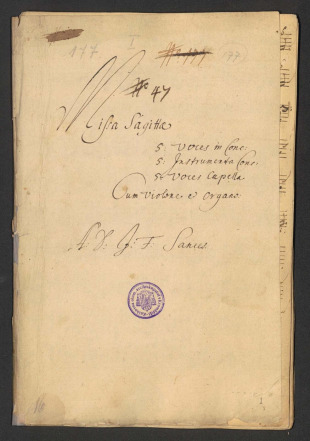 177 I 177
№ 47
Missa Sagittæ
5. Voces in Conc.
5. Instrumenta Conc.
5. Voces Capella
Cum Violone e Organo
A: D: J: F: Sances
16
1